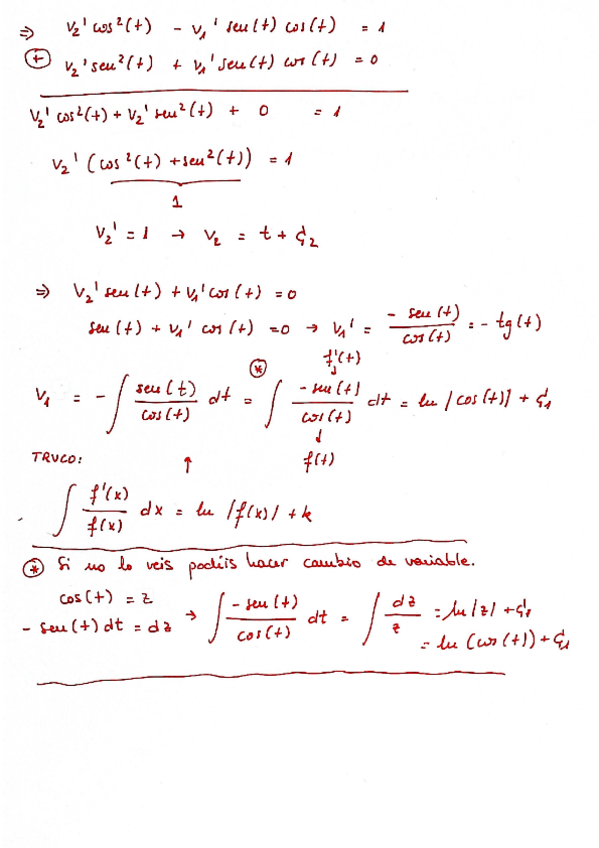 ⇒ v₂' cos²(t) - v₁' sen(t) cos(t) = 1
(+) v₂' sen²(t) + v₁' sen(t) cos(t) = 0
v₂' cos²(t) + v₂' sen²(t) + 0 = 1
v₂' (cos²(t) + sen²(t)) = 1
1
v₂' = 1 → v₂ = t + C₂
⇒ v₂' sen(t) + v₁' cos(t) = 0
sen(t) + v₁' cos(t) = 0 → v₁' = -sen(t)/cos(t) = -tg(t)
f'(t)
↓
v₁ = -∫ sen(t)/cos(t) dt =(*) ∫ -sen(t)/cos(t) dt = ln|cos(t)| + C₁
↓
TRUCO: ↑ f(t)
∫ f'(x)/f(x) dx = ln|f(x)| + k
(*) Si no lo veis podéis hacer cambio de variable.
cos(t) = z
-sen(t) dt = dz → ∫ -sen(t)/cos(t) dt = ∫ dz/z = ln|z| + C₁
= ln(cos(t)) + C₁